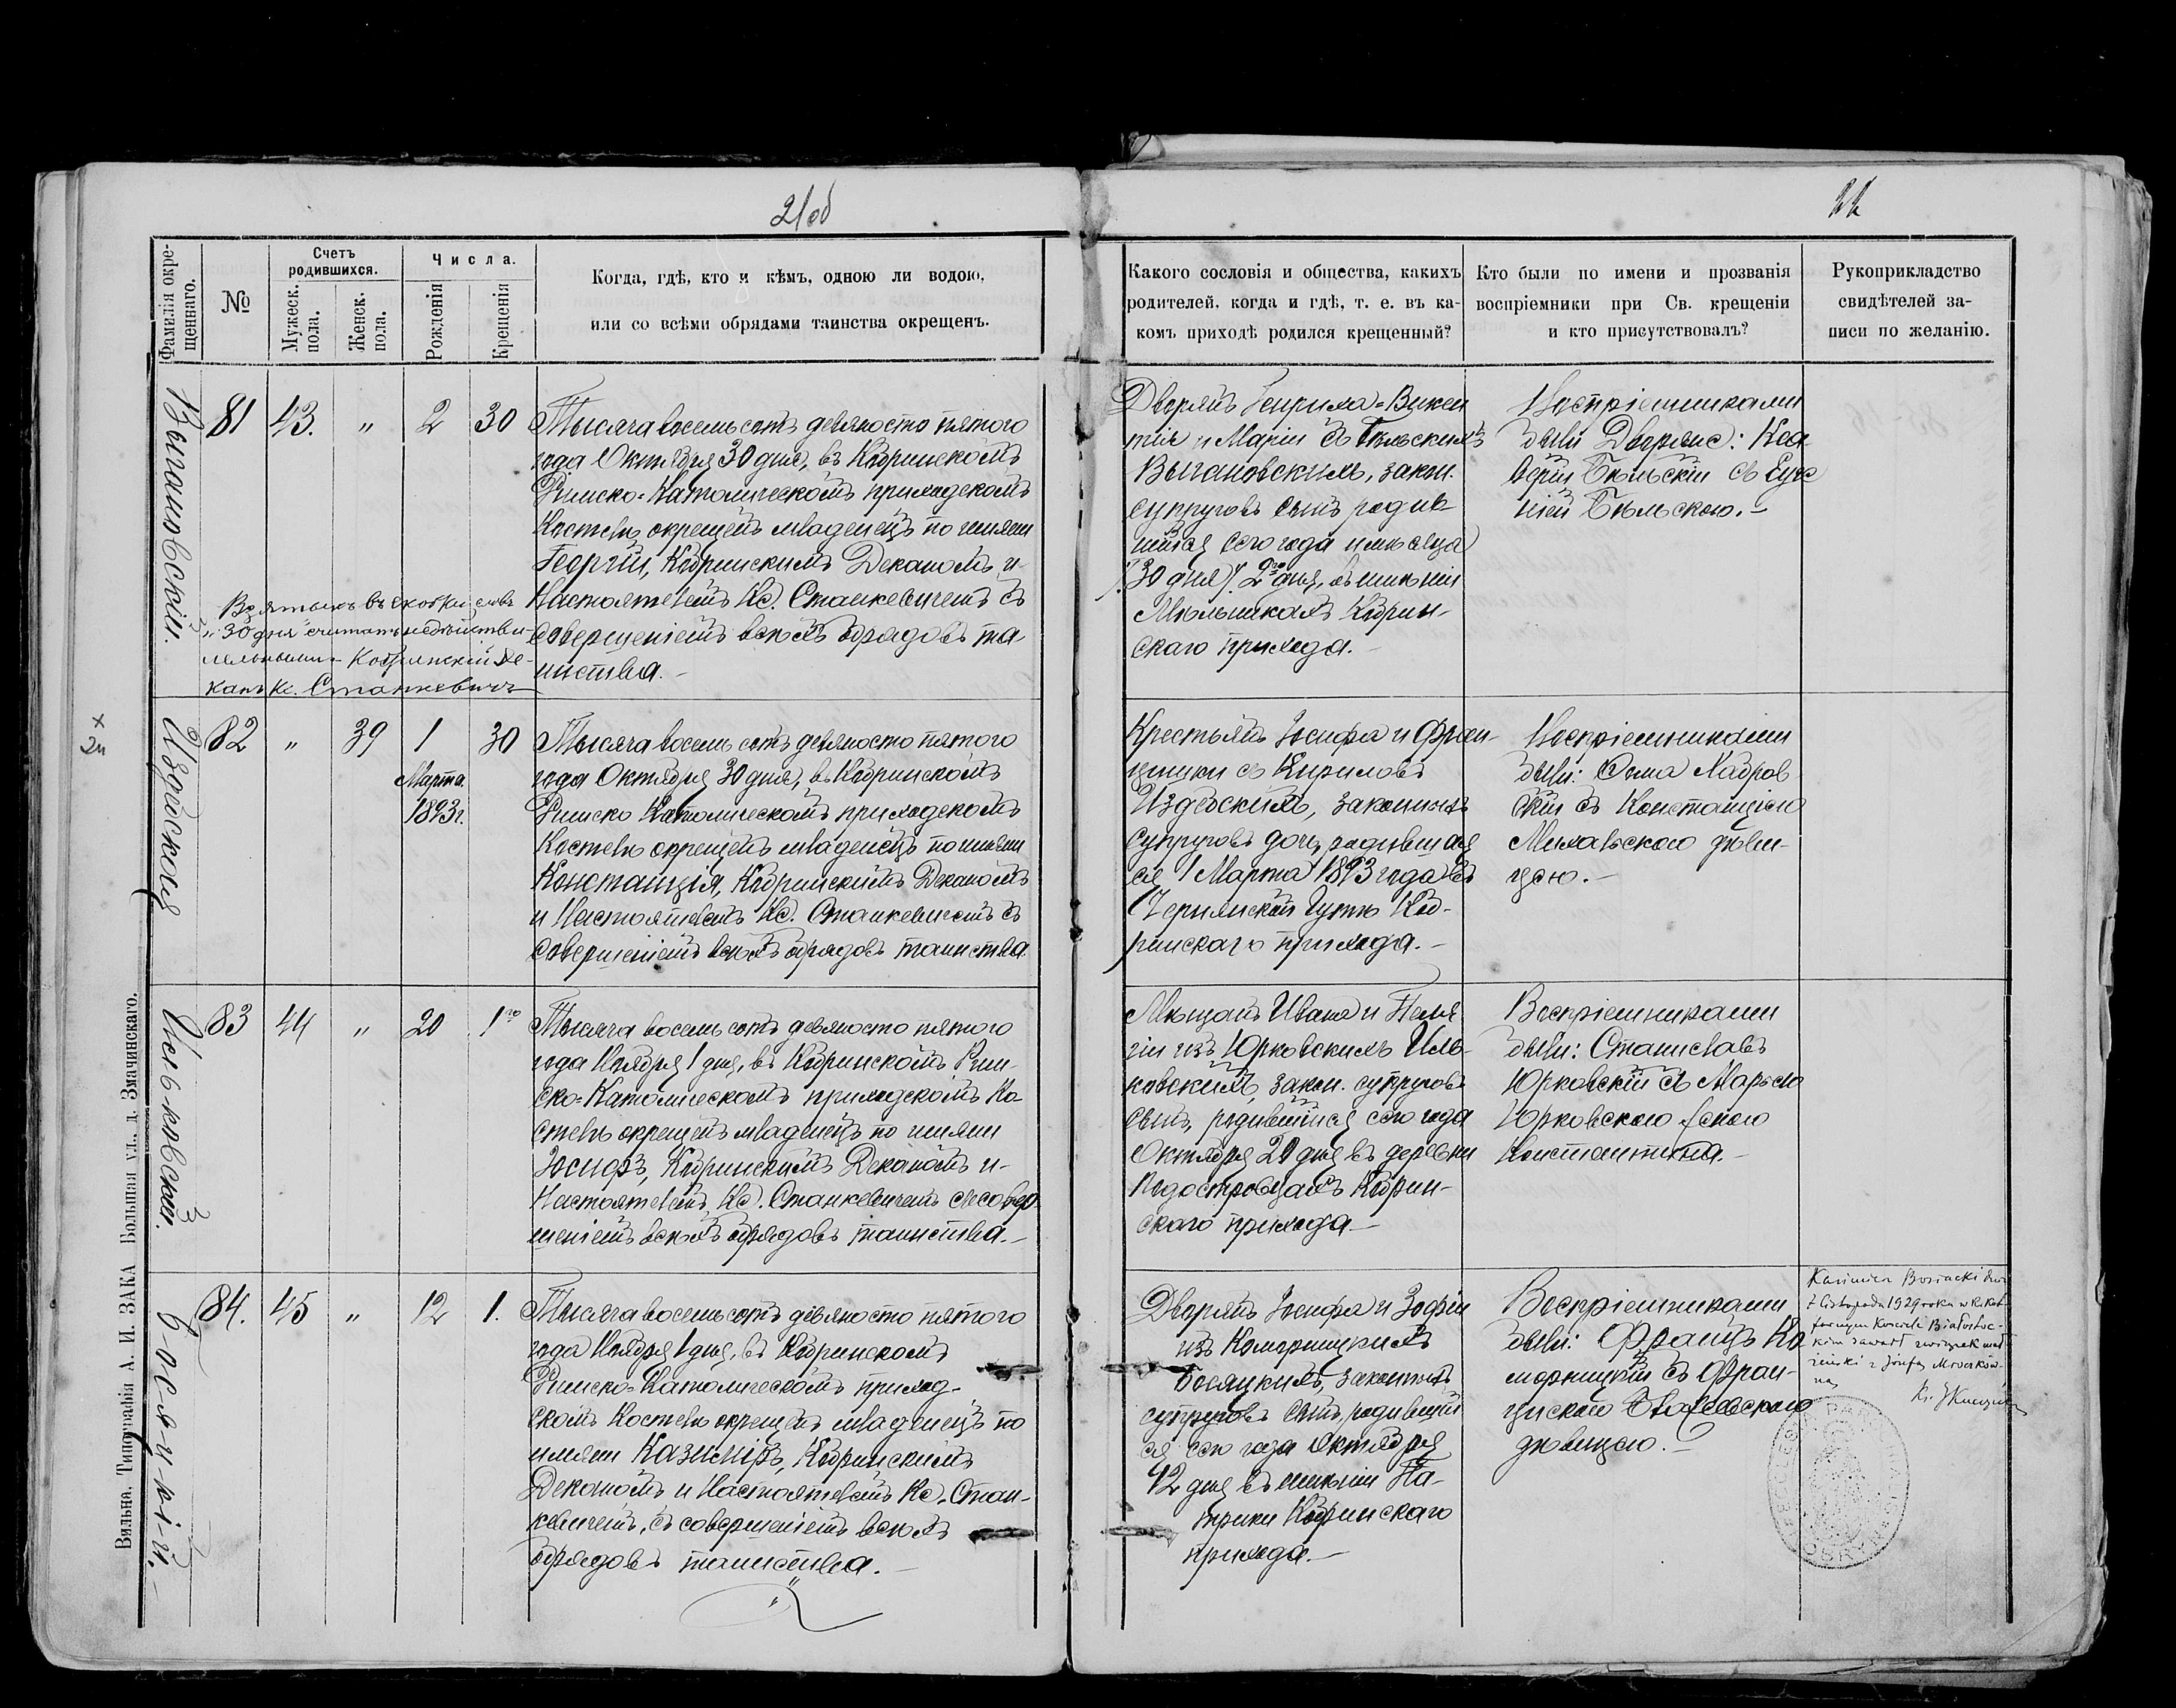 21об
Фамилія окре-
щеннаго.
№
Счетъ
родившихся.
Мужеск.
пола.
Женск.
пола.
Числа.
Рожденія
Крещенія
Когда, гдѣ, кто и кѣмъ, одною ли водою,
или со всѣми обрядами таинства окрещенъ.
Выгановскій.
81 43. " 2 30
Тысяча восемьсотъ девяносто пятого
года Октября 30 дня, въ Кобринскомъ
Римско-Католическомъ приходскомъ
Костелѣ окрещенъ младенецъ по имени
Георгій, Кобринскимъ Деканомъ и
Настоятелемъ Кс. Станкевичемъ съ
совершеніемъ всѣхъ обрядовъ та-
инства.-
Взятыхъ въ скобки словъ
"30 дня" считать недѣйстви-
тельными Кобринскій Де-
канъ Кс. Станкевичъ
Издѣбская
82 " 39 1 30
Марта
1893г.
Тысяча восемь сотъ девяносто пятого
года Октября 30 дня, въ Кобринскомъ
Римско Католическомъ приходскомъ
Костелѣ окрещенъ младенецъ по имени
Констанція, Кобринскимъ Деканомъ
и Настоятелемъ Кс. Станкевичемъ съ
совершеніемъ всѣхъ обрядовъ таинства
Ильковскій.
83 44 " 20 1го
Тысяча восемь сотъ девяносто пятого
года Ноября 1 дня, въ Кобринскомъ Рим-
ско-Католическомъ приходскомъ Ко-
стелѣ окрещенъ младенецъ по имени
Іосифъ, Кобринскимъ Деканомъ и-
Настоятелемъ Кс. Станкевичемъ съ совер-
шеніемъ всѣхъ обрядовъ таинства.-
Босяцкій.-
84. 45 " 12 1.
Тысяча восемьсотъ девяносто пятого
года Ноября 1 дня, въ Кобринскомъ
Римско-Католическомъ приход-
скомъ Костелѣ окрещенъ младенецъ по
имени Казимиръ, Кобринскимъ
Деканомъ и Настоятелемъ Кс. Стан-
кевичемъ, съ совершеніемъ всѣхъ
обрядовъ таинства.-
Вильна. Типографія А. И. ЗАКА Большая ул., д. Змачинскаго.
22
Какого сословія и общества, какихъ
родителей, когда и гдѣ, т. е. въ ка-
комъ приходѣ родился крещенный?
Кто были по имени и прозванія
воспріемники при Св. крещеніи
и кто присутствовалъ?
Рукоприкладство
свидѣтелей за-
писи по желанію.
Дворянъ Генриха-Викен
тія и Маріи съ Бѣльскихъ
Выгановскихъ, закон.
супруговъ сынъ родив-
шійся сего года мѣсяца
(30 дня) 2го дня, въ имѣніи
Мѣльникахъ Кобрин-
скаго прихода.-
Воспріемниками
были Дворяне: Кса
верій Бѣльскій съ Евге
ніей Бѣльскою.-
Крестьянъ Іосифа и Фран-
цишки съ Кириловъ
Издебскихъ, законныхъ
супруговъ дочь, родившая
ся 1 Марта 1893 года въ
Чернянской Гутѣ Коб-
ринскаго прихода.-
Воспріемниками
были:
съ Констанціею
дѣви-
цею.-
Мѣщанъ Ивана и Пела
гіи изъ Юрковскихъ Иль-
ковскихъ, закон. супруговъ
сынъ, родившійся сего года
Октября 20 дня въ деревни
Кобрин-
скаго прихода-
Воспріемниками
были: Станиславъ
Юрковскій съ Марьею
Юрковскою женою
Константина.-
Дворянъ Іосифа и Зофіи
изъ Коморницкихъ
Босяцкихъ, законныхъ
супруговъ сынъ, родившій
ся сего года Октября
12 дня въ имѣніи Па-
трики Кобринскаго
прихода.-
Воспріемниками
были: Францъ Ко
морницкій съ Фран-
цискою
дѣвицею.-
Kazimierz Bosiacki dnia
7 listopada 1929 roku w
kościele Białostoc-
kim zawarł związek mał-
żeński z Józefą